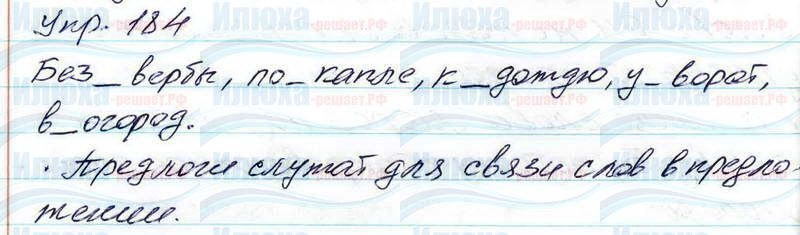 Упр. 184
Без_ вербы, по_ капле, к_ дождю, у_ ворот,
в_ огород.
· Предлоги служат для связи слов в предло-
жении.